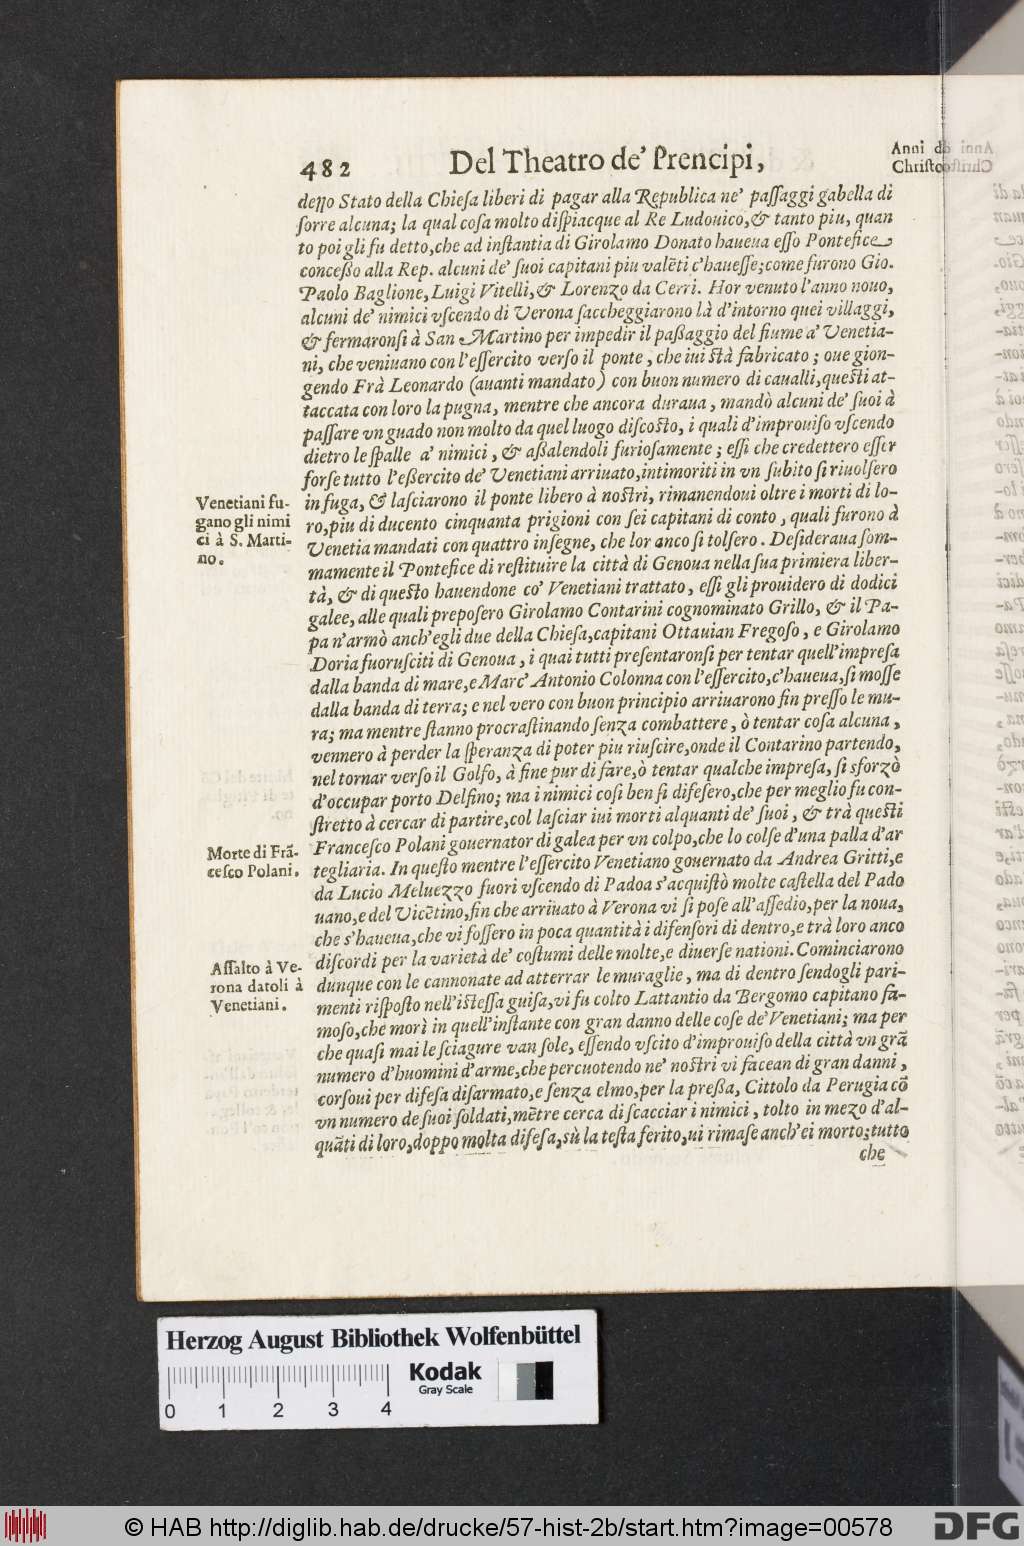 482 Del Theatro de' Prencipi,
Anni di
Christo
dello Stato della Chieſa liberi di pagar alla Republica ne' paſſaggi gabella di
ſorte alcuna; la qual coſa molto diſpiacque al Re Ludouico, & tanto piu, quan
to poi gli fu detto, che ad inſtantia di Girolamo Donato haueua eſſo Pontefice
conceßo alla Rep. alcuni de' ſuoi capitani piu valēti c'haueſſe; come furono Gio.
Paolo Baglione, Luigi Vitelli, & Lorenzo da Cerri. Hor venuto l'anno nouo,
alcuni de' nimici vſcendo di Verona ſaccheggiarono là d'intorno quei villaggi,
& fermaronſi à San Martino per impedir il paßaggio del fiume a' Venetia-
ni, che veniuano con l'eſſercito verſo il ponte, che iui ſtà fabricato; oue gion-
gendo Frà Leonardo (auanti mandato) con buon numero di caualli, queſti at-
taccata con loro la pugna, mentre che ancora duraua, mandò alcuni de' ſuoi à
paſſare vn guado non molto da quel luogo diſcoſto, i quali d'improuiſo vſcendo
dietro le ſpalle a' nimici, & aßalendoli furioſamente; eſſi che credettero eſſer
forſe tutto l'eßercito de' Venetiani arriuato, intimoriti in vn ſubito ſi riuolſero
in fuga, & laſciarono il ponte libero à noſtri, rimanendoui oltre i morti di lo-
ro, piu di ducento cinquanta prigioni con ſei capitani di conto, quali furono à
Venetia mandati con quattro inſegne, che lor anco ſi tolſero. Deſideraua ſom-
mamente il Pontefice di reſtituire la città di Genoua nella ſua primiera liber-
tà, & di queſto hauendone co' Venetiani trattato, eſſi gli prouidero di dodici
galee, alle quali prepoſero Girolamo Contarini cognominato Grillo, & il Pa-
pa n'armò anch'egli due della Chieſa, capitani Ottauian Fregoſo, e Girolamo
Doria fuoruſciti di Genoua, i quai tutti preſentaronſi per tentar quell'impreſa
dalla banda di mare, e Marc' Antonio Colonna con l'eſſercito, c'haueua, ſi moſſe
dalla banda di terra; e nel vero con buon principio arriuarono fin preſſo le mu-
ra; ma mentre ſtanno procraſtinando ſenza combattere, ò tentar coſa alcuna,
vennero à perder la ſperanza di poter piu riuſcire, onde il Contarino partendo,
nel tornar verſo il Golfo, à fine pur di fare, ò tentar qualche impreſa, ſi sforzò
d'occupar porto Delfino; ma i nimici coſi ben ſi difeſero, che per meglio fu con-
ſtretto à cercar di partire, col laſciar iui morti alquanti de' ſuoi, & trà queſti
Franceſco Polani gouernator di galea per vn colpo, che lo colſe d'una palla d'ar
tegliaria. In queſto mentre l'eſſercito Venetiano gouernato da Andrea Gritti, e
da Lucio Meluezzo fuori vſcendo di Padoa s'acquiſtò molte caſtella del Pado
uano, e del Vicētino, fin che arriuato à Verona vi ſi poſe all'aſſedio, per la noua,
che s'haueua, che vi foſſero in poca quantità i difenſori di dentro, e trà loro anco
diſcordi per la varietà de' coſtumi delle molte, e diuerſe nationi. Cominciarono
dunque con le cannonate ad atterrar le muraglie, ma di dentro ſendogli pari-
menti riſpoſto nell'iſteſſa guiſa, vi fu colto Lattantio da Bergomo capitano fa-
moſo, che morì in quell'inſtante con gran danno delle coſe de' Venetiani; ma per
che quaſi mai le ſciagure van ſole, eſſendo vſcito d'improuiſo della città vn grā
numero d'huomini d'arme, che percuotendo ne' noſtri vi facean di gran danni,
corſoui per difeſa diſarmato, e ſenza elmo, per la preßa, Cittolo da Perugia cō
vn numero de ſuoi ſoldati, mētre cerca di ſcacciar i nimici, tolto in mezo d'al-
quāti di loro, doppo molta difeſa, sù la teſta ferito, ui rimaſe anch'ei morto; tutto
che
Venetiani fu-
gano gli nimi
ci à S. Marti-
no.
Morte di Frā-
ceſco Polani.
Aſſalto à Ve-
rona datoli à
Venetiani.
Herzog August Bibliothek Wolfenbüttel
Kodak
Gray Scale
0 1 2 3 4
© HAB http://diglib.hab.de/drucke/57-hist-2b/start.htm?image=00578
DFG